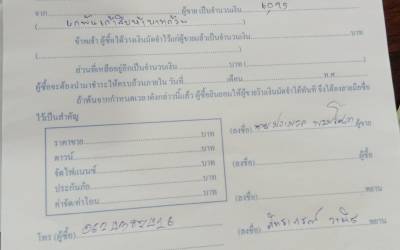 จาก ผู้ขาย เป็นจำนวนเงิน 6,095
(หกพันเก้าสิบห้าบาทถ้วน)
ข้าพเจ้า ผู้ซื้อได้วางเงินมัดจำไว้แก่ผู้ขายแล้วเป็นจำนวนเงิน
( )
ส่วนที่เหลืออยู่อีกเป็นจำนวนเงิน บาท ( )
ผู้ซื้อจะต้องนำมาชำระให้ครบถ้วนภายใน วันที่ เดือน พ.ศ.
ถ้าพ้นจากกำหนดเวลาดังกล่าวนี้แล้ว ผู้ซื้อยินยอมให้ผู้ขายริบเงินมัดจำได้ทันที จึงได้ลงลายมือชื่อ
ไว้เป็นสำคัญ
ราคาขาย บาท
ดาวน์ บาท
จัดไฟแนนซ์ บาท
ประกันภัย บาท
ค่าจัด/ค่าโอน บาท
(ลงชื่อ) ผู้ขาย
(ลงชื่อ) ผู้ซื้อ
(ลงชื่อ) พยาน
(ลงชื่อ) พยาน
โทร (ผู้ซื้อ)